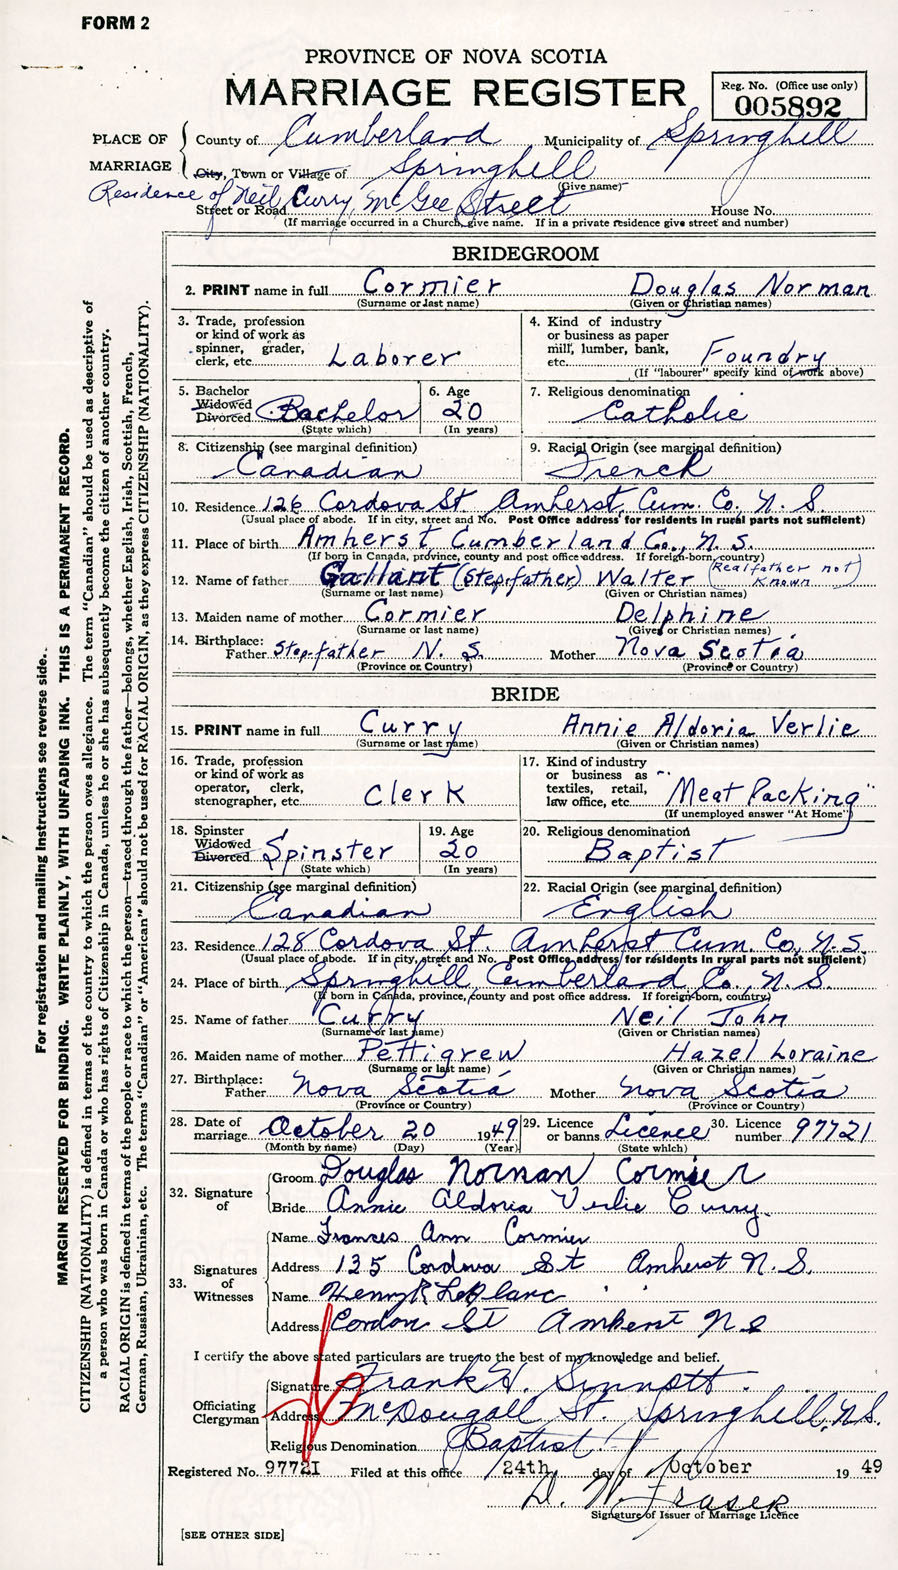 FORM 2
PROVINCE OF NOVA SCOTIA
MARRIAGE REGISTER
Reg. No. (Office use only)
005892
PLACE OF MARRIAGE
County of Cumberland Municipality of Springhill
City, Town or Village of Springhill
(Give name)
Residence of Neil Curry, McGee Street
Street or Road House No.
(If marriage occurred in a Church, give name. If in a private residence give street and number)
BRIDEGROOM
2. PRINT name in full Cormier Douglas Norman
(Surname or last name) (Given or Christian names)
3. Trade, profession or kind of work as spinner, grader, clerk, etc. Laborer
4. Kind of industry or business as paper mill, lumber, bank, etc. Foundry
(If "labourer" specify kind of work above)
5. Bachelor Widowed Divorced Bachelor
(State which)
6. Age 20
(In years)
7. Religious denomination
Catholic
8. Citizenship (see marginal definition)
Canadian
9. Racial Origin (see marginal definition)
French
10. Residence 126 Cordova St. Amherst, Cum. Co. N. S.
(Usual place of abode. If in city, street and No. Post Office address for residents in rural parts not sufficient)
11. Place of birth Amherst, Cumberland Co., N. S.
(If born in Canada, province, county and post office address. If foreign-born, country)
12. Name of father Gallant (Stepfather) Walter (Real father not known)
(Surname or last name) (Given or Christian names)
13. Maiden name of mother Cormier Delphine
(Surname or last name) (Given or Christian names)
14. Birthplace: Father Step-father N. S. Mother Nova Scotia
(Province or Country) (Province or Country)
BRIDE
15. PRINT name in full Curry Annie Aldoria Verlie
(Surname or last name) (Given or Christian names)
16. Trade, profession or kind of work as operator, clerk, stenographer, etc. Clerk
17. Kind of industry or business as textiles, retail, law office, etc. "Meat Packing"
(If unemployed answer "At Home")
18. Spinster Widowed Divorced Spinster
(State which)
19. Age 20
(In years)
20. Religious denomination
Baptist
21. Citizenship (see marginal definition)
Canadian
22. Racial Origin (see marginal definition)
English
23. Residence 128 Cordova St. Amherst Cum. Co., N. S.
(Usual place of abode. If in city, street and No. Post Office address for residents in rural parts not sufficient)
24. Place of birth Springhill, Cumberland Co., N. S.
(If born in Canada, province, county and post office address. If foreign-born, country)
25. Name of father Curry Neil John
(Surname or last name) (Given or Christian names)
26. Maiden name of mother Pettigrew Hazel Loraine
(Surname or last name) (Given or Christian names)
27. Birthplace: Father Nova Scotia Mother Nova Scotia
(Province or Country) (Province or Country)
28. Date of marriage October 20 1949
(Month by name) (Day) (Year)
29. Licence or banns Licence
(State which)
30. Licence number 97721
32. Signature of
Groom Douglas Norman Cormier
Bride Annie Aldoria Verlie Curry
33. Signatures of Witnesses
Name Frances Ann Cormier
Address 135 Cordova St Amherst N. S.
Name Henry R LeBlanc
Address Cordon St Amherst N S
I certify the above stated particulars are true to the best of my knowledge and belief.
Officiating Clergyman
Signature Frank H. Sinnott.
Address McDougall St. Springhill, N.S.
Religious Denomination Baptist
Registered No. 97721 Filed at this office 24th day of October 1949
D. W. Fraser
Signature of Issuer of Marriage Licence
[SEE OTHER SIDE]
For registration and mailing instructions see reverse side.
MARGIN RESERVED FOR BINDING. WRITE PLAINLY, WITH UNFADING INK. THIS IS A PERMANENT RECORD.
CITIZENSHIP (NATIONALITY) is defined in terms of the country to which the person owes allegiance. The term "Canadian" should be used as descriptive of
a person who was born in Canada or who has rights of Citizenship in Canada, unless he or she has subsequently become the citizen of another country.
RACIAL ORIGIN is defined in terms of the people or race to which the person—traced through the father—belongs, whether English, Irish, Scottish, French,
German, Russian, Ukrainian, etc. The terms "Canadian" or "American" should not be used for RACIAL ORIGIN, as they express CITIZENSHIP (NATIONALITY).